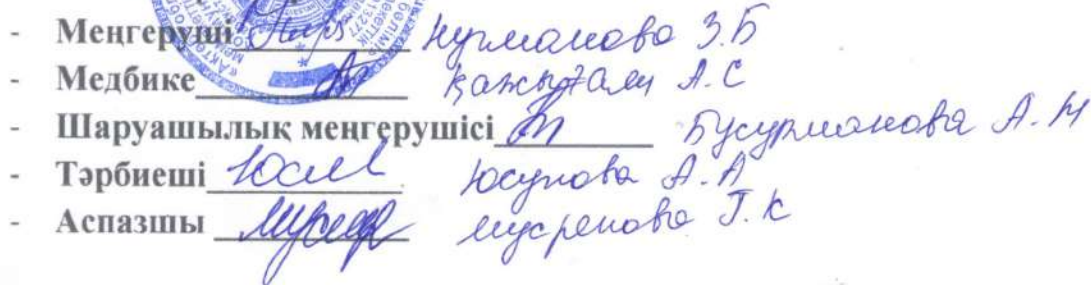 - Меңгеруші Нурманова З.Б
- Медбике Қажығали А.С
- Шаруашылық меңгерушісі Бусурманова А.М
- Тәрбиеші Юсупова А.А
- Аспазшы Мусренова Г.К